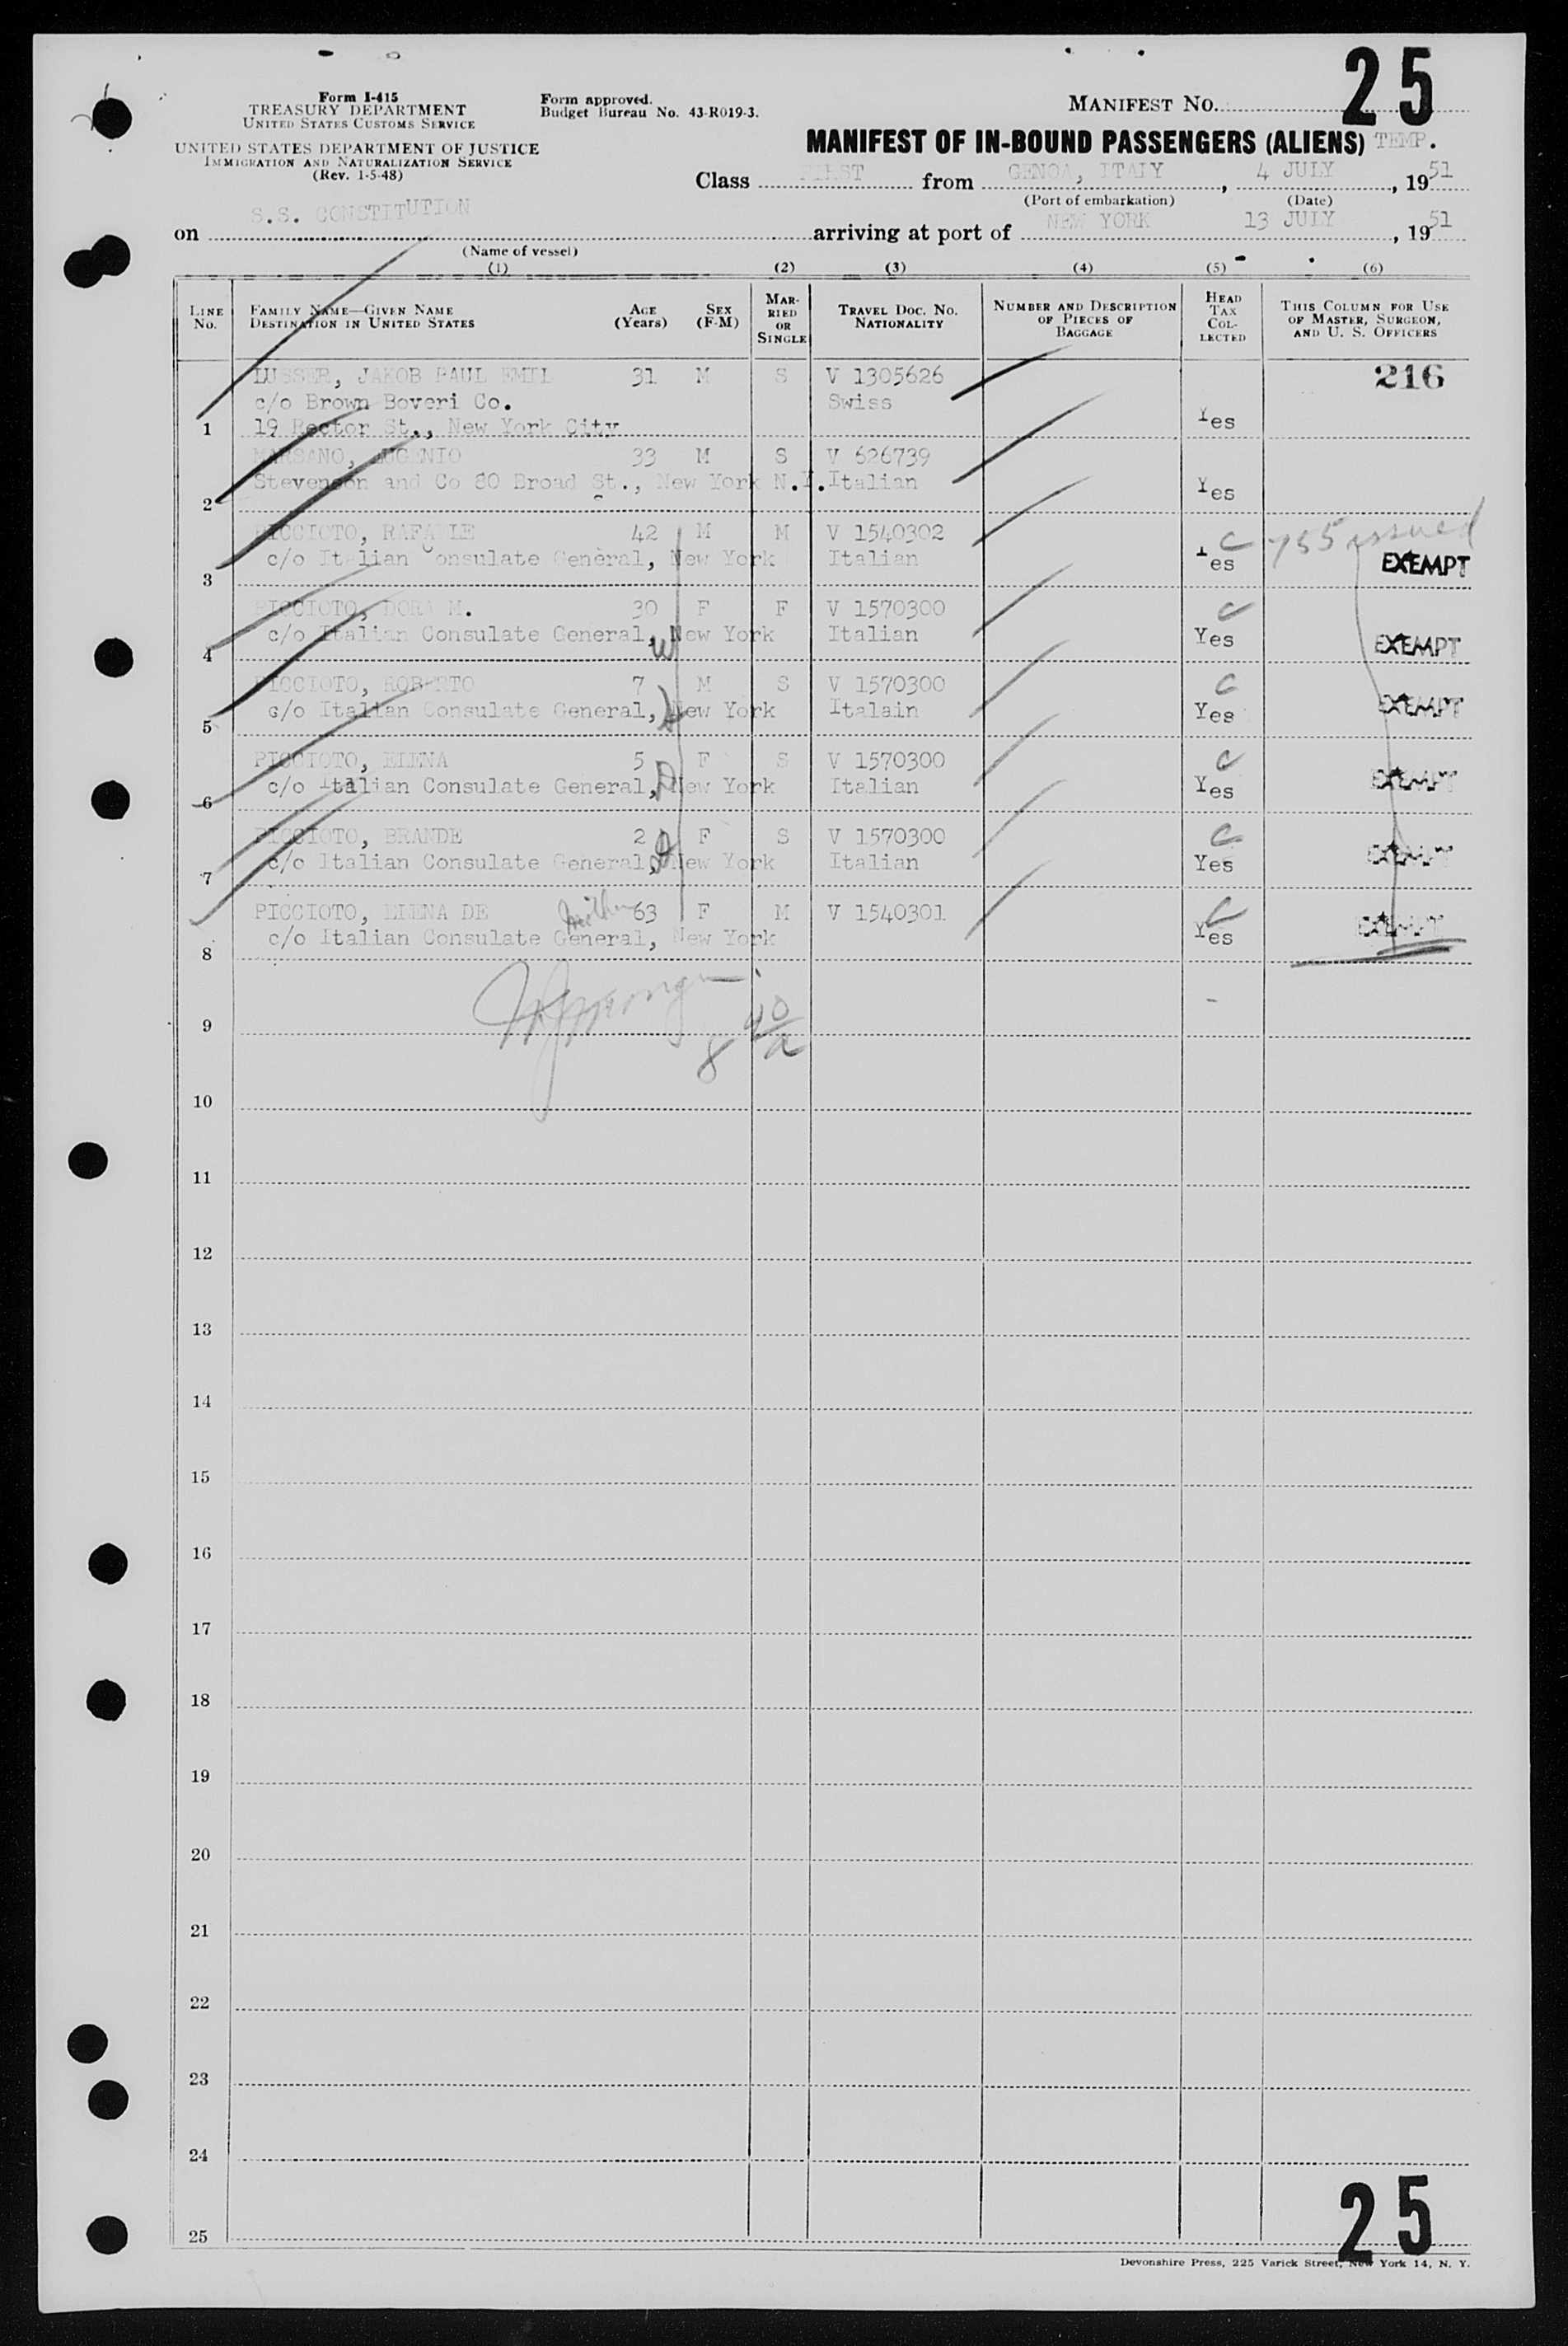 25
Form I-415
TREASURY DEPARTMENT
UNITED STATES CUSTOMS SERVICE
UNITED STATES DEPARTMENT OF JUSTICE
IMMIGRATION AND NATURALIZATION SERVICE
(Rev. 1-5-48)
Form approved.
Budget Bureau No. 43-R019-3.
MANIFEST NO.
MANIFEST OF IN-BOUND PASSENGERS (ALIENS) TEMP.
Class FIRST from GENOA, ITALY, 4 JULY, 1951
(Port of embarkation) (Date)
on S.S. CONSTITUTION arriving at port of NEW YORK 13 JULY, 1951
(Name of vessel)
(1) (2) (3) (4) (5) (6)
LINE No. FAMILY NAME—GIVEN NAME DESTINATION IN UNITED STATES AGE (Years) SEX (F-M) MARRIED OR SINGLE TRAVEL DOC. NO. NATIONALITY NUMBER AND DESCRIPTION OF PIECES OF BAGGAGE HEAD TAX COLLECTED THIS COLUMN FOR USE OF MASTER, SURGEON, AND U. S. OFFICERS
LUSSER, JAKOB PAUL EMIL 31 M S V 1305626 216
c/o Brown Boveri Co. Swiss
1 19 Rector St., New York City Yes
MARSANO, EUGENIO 33 M S V 626739
2 Stevenson and Co 80 Broad St., New York N.Y. Italian Yes
PICCIOTO, RAFAELE 42 M M V 1540302 C 755 issued
3 c/o Italian Consulate General, New York Italian Yes EXEMPT
PICCIOTO, DORA M. 30 F F V 1570300 C
4 c/o Italian Consulate General, W New York Italian Yes EXEMPT
PICCIOTO, ROBERTO 7 M S V 1570300 C
5 c/o Italian Consulate General, New York Italain Yes EXEMPT
PICCIOTO, ELENA 5 F S V 1570300 C
6 c/o Italian Consulate General, D New York Italian Yes EXEMPT
PICCIOTO, BRANDE 2 F S V 1570300 C
7 c/o Italian Consulate General, D New York Italian Yes EXEMPT
PICCIOTO, ELENA DE Mother 63 F M V 1540301 C
8 c/o Italian Consulate General, New York Yes EXEMPT
9
8
10
11
12
13
14
15
16
17
18
19
20
21
22
23
24
25
25
Devonshire Press, 225 Varick Street, New York 14, N. Y.